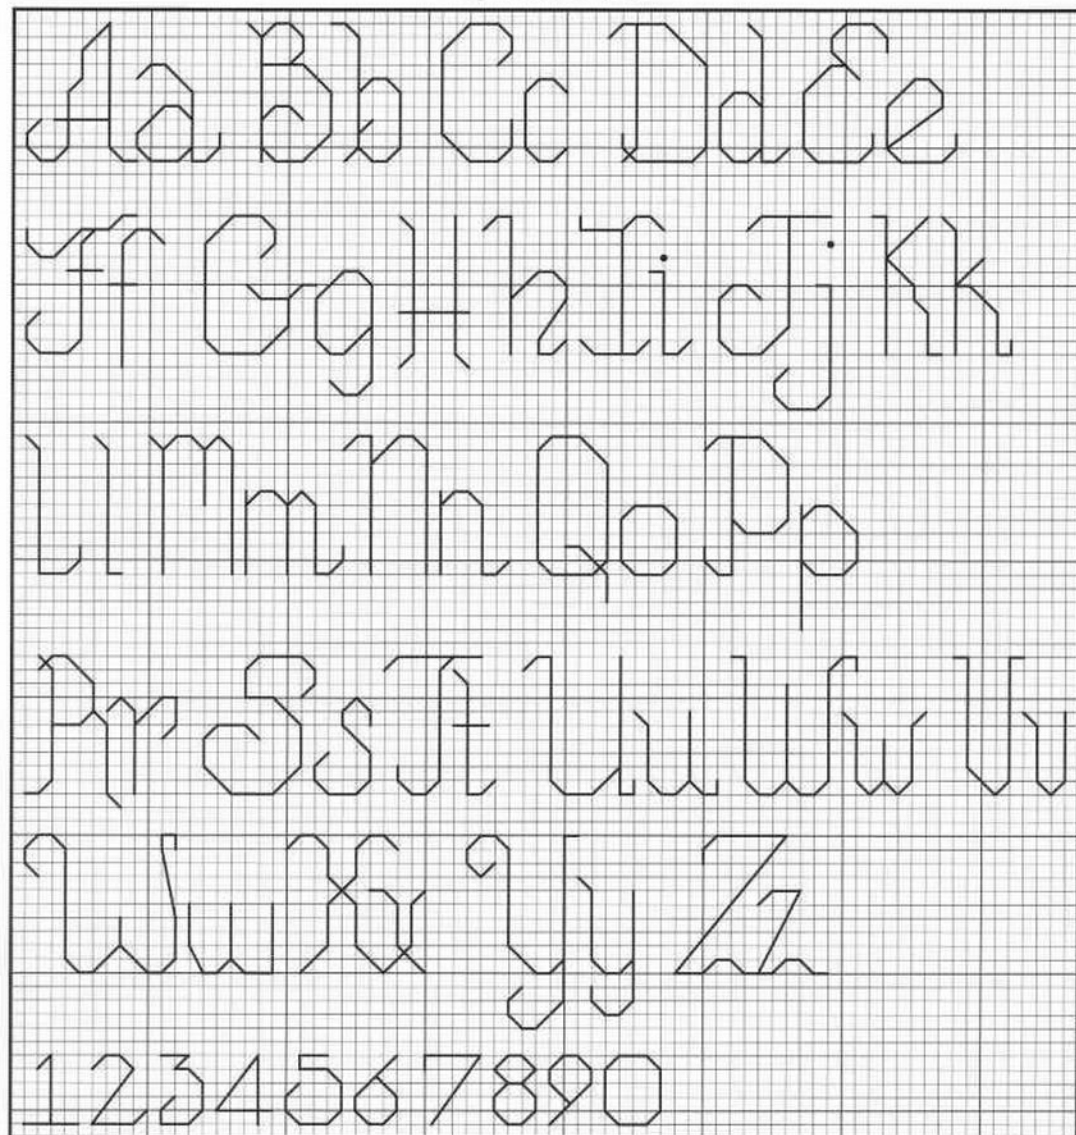 Aa Bb Cc Dd Ee
Ff Gg Hh Ii Jj Kk
Ll Mm Nn Qo Pp
Rr Ss Tt Uu Ww Vv
Ww Xx Yy Zz
1234567890